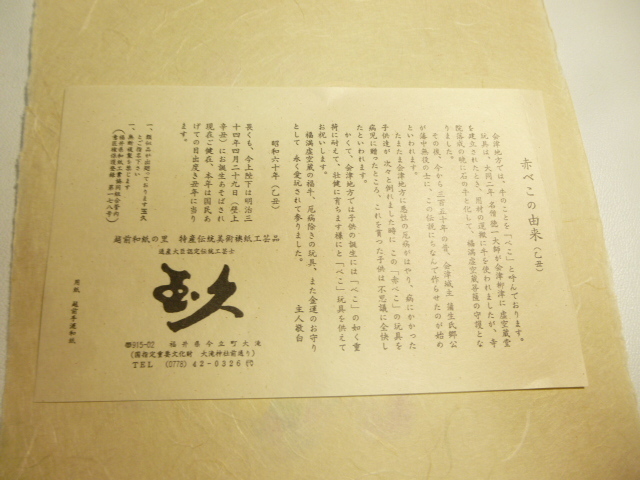 赤べこの由来(乙丑)
会津地方では、牛のことを「べこ」と呼んでおります。
玩具は、大同二年、名僧徳一大師が会津柳津に虚空蔵堂
を建立されたとき、用材の運搬に牛を使われましたが、寺
院落成の暁に石の牛と化して、福満虚空蔵菩薩の守護とな
りました。
その後、今から三百五十年の昔、会津城主 蒲生氏郷公
が藩中無役の士に、この伝説にちなんで作らせたのが始め
といわれます。
たまたま会津地方に悪性の厄病がはやり、病にかかった
子供達が、次々と倒れました時に、この「赤べこ」の玩具を
病児に贈ったところ、これを貰った子供は不思議に全快し
たといわれます。
かくて、会津地方では子供の誕生には「べこ」の如く重
荷に耐えて、壮健に育ちます様にと「べこ」玩具を供えて
お祝いします。
福満虚空蔵の福牛、厄病除きの玩具、また金運のお守り
として 永く愛玩されて参りました。
主人敬白
昭和六十年(乙丑)
畏くも、今上陛下は明治三
十四年四月二十九日(歴上
辛丑)にお誕生あそばされ
現在ご健在、本年は国民あ
げての目出度き丑年に当り
ます。
一、類似品が出廻っております玉久
とご指定下さい
一、無断複製を禁じます
越前和紙の里 特産伝統美術襖紙工芸品
通産大臣認定伝統工芸士
玉久
〒915-02 福井県今立町大滝
(国指定重要文化財 大滝神社前通り)
TEL (0778) 42-0326㈹
用紙 越前手漉和紙